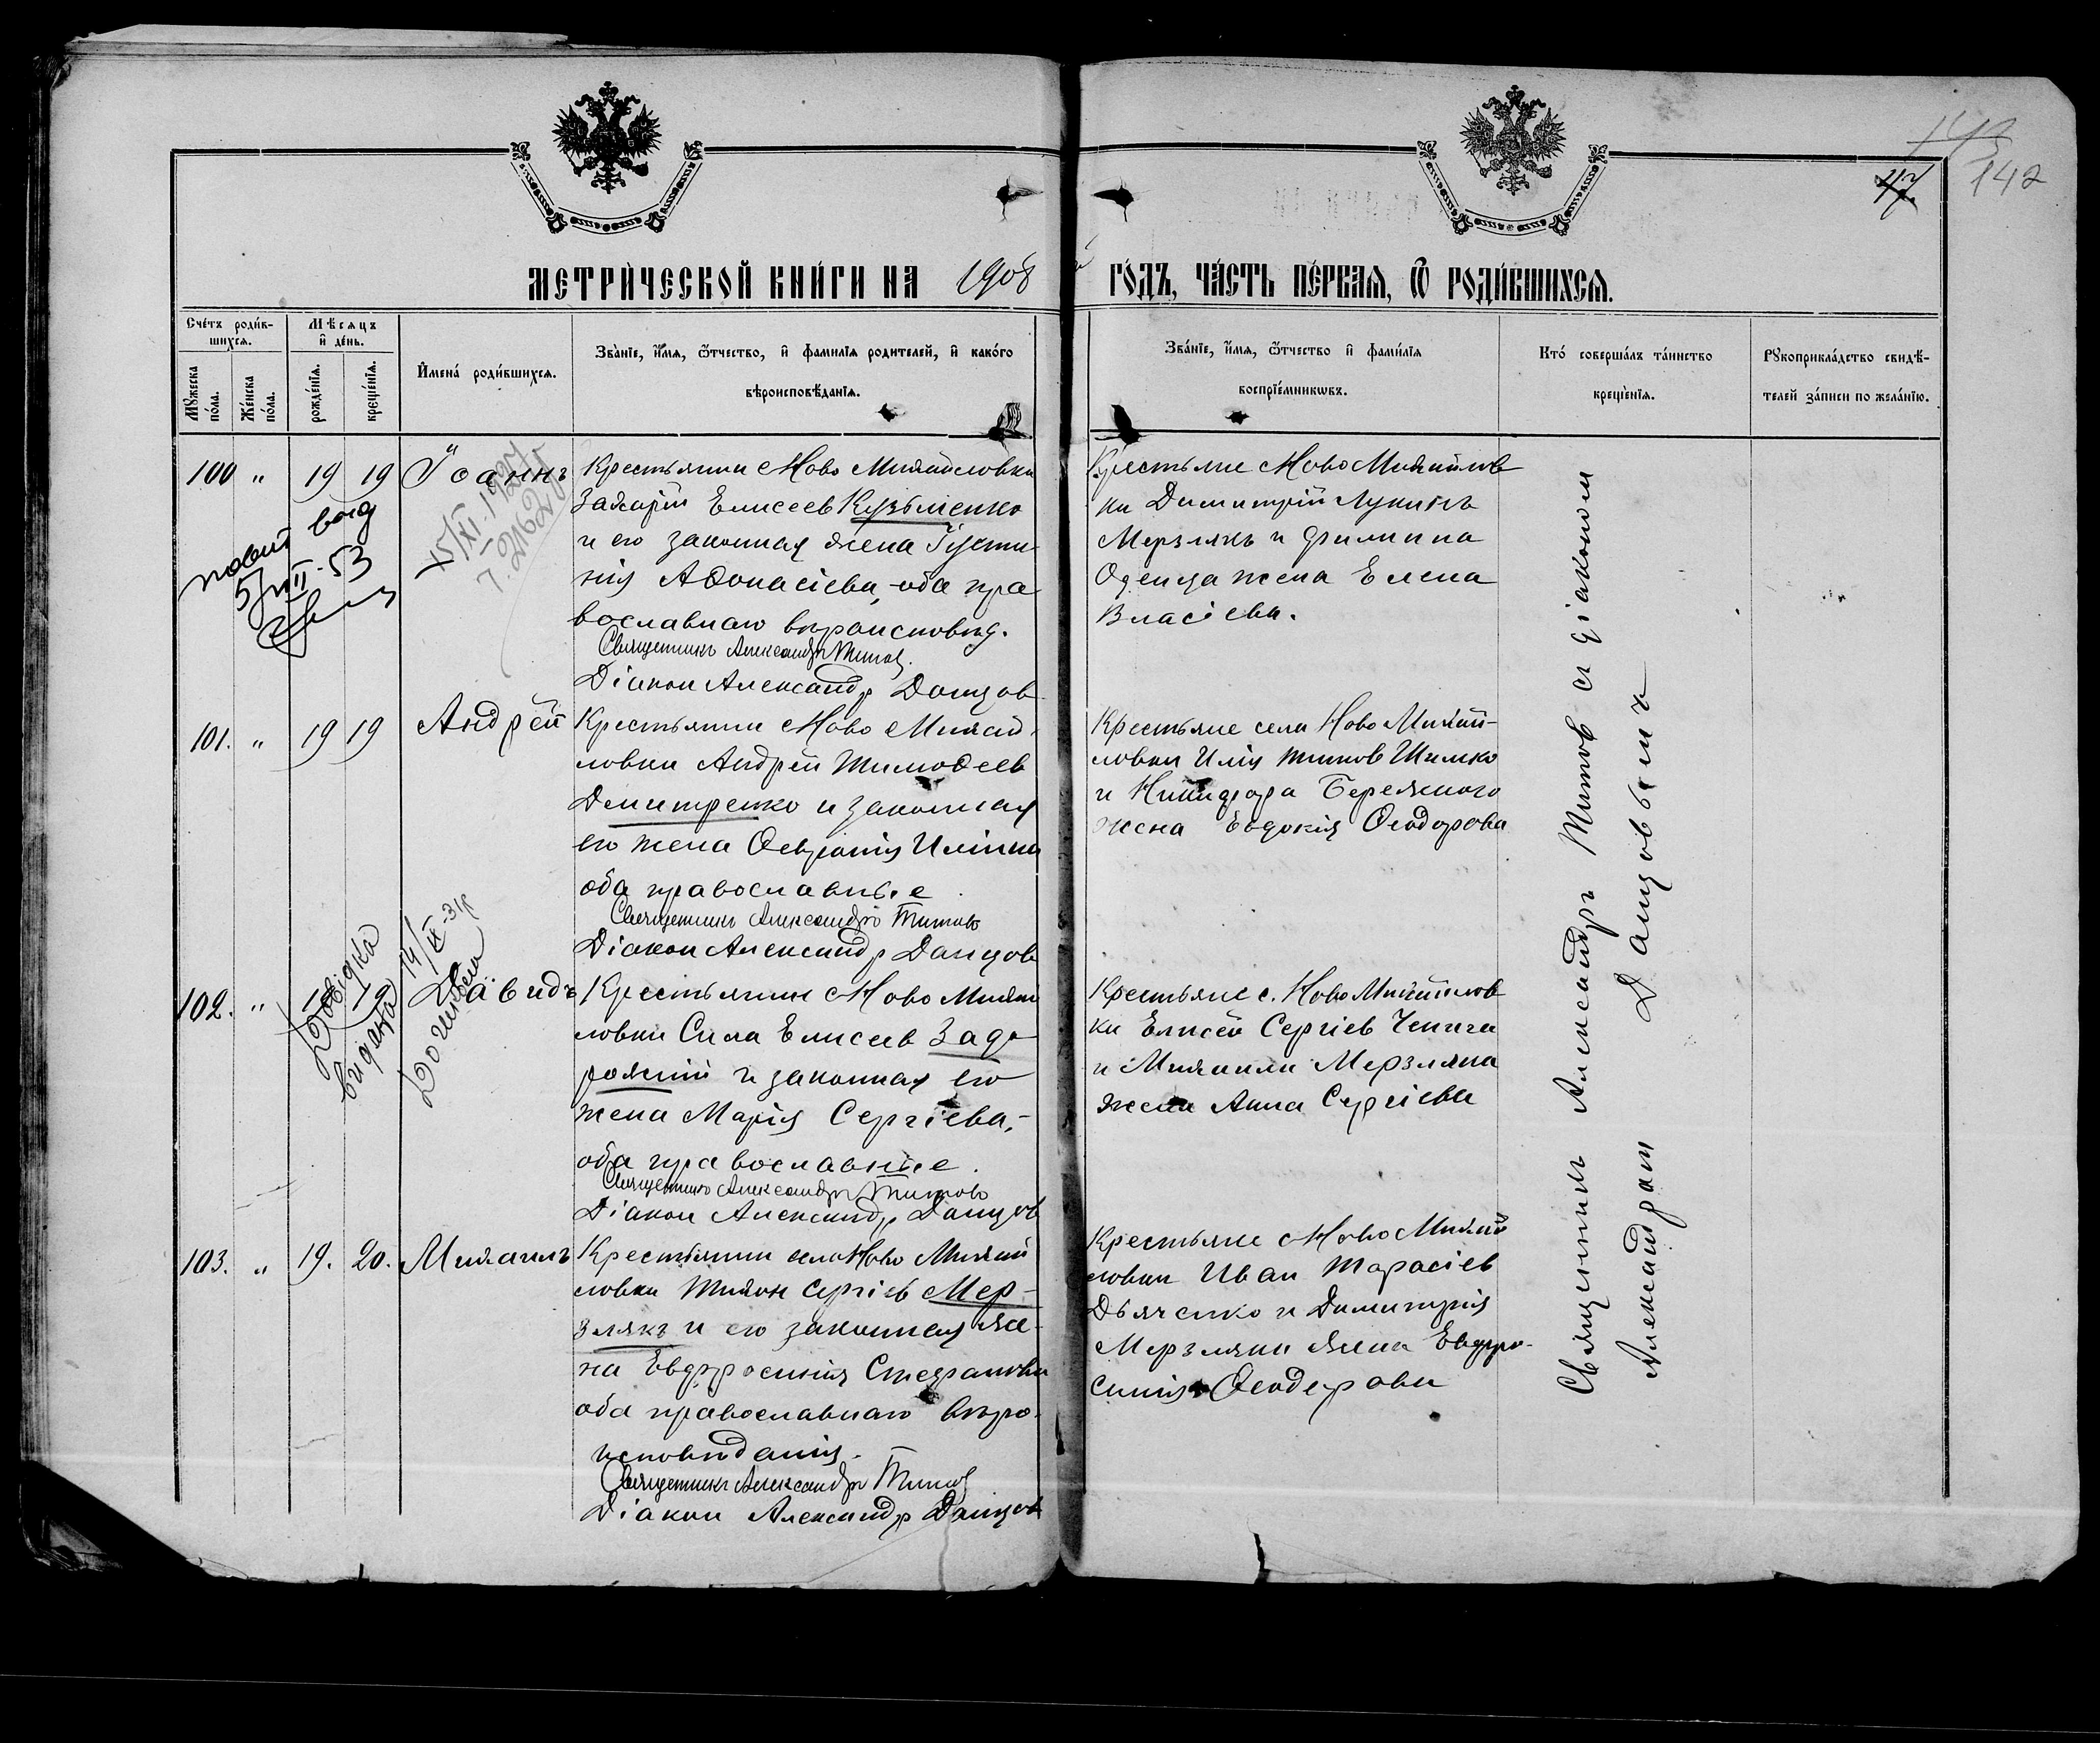 МЕТРИ́ЧЕСКОЙ КНИ́ГИ НА 1908 ГО́ДЪ, ЧА́СТЬ ПЕ́РВАЯ, Ѿ РОДИ́ВШИХСЯ.
142
Сче́тъ роди́вшихся.
Мѣсяцъ и де́нь.
Мꙋжеска по́ла.
Же́нска по́ла.
рожде́нїя.
креще́нїя.
И҆мена́ роди́вшихся.
Зва́нїе, и҆́мя, ѻ҆́тчество, и҆ фами́лїя роди́телей, и҆ како́го
вѣроисповѣ́данїя.
Зва́нїе, и҆́мя, ѻ҆́тчество и҆ фами́лїя
воспрїе́мникѡвъ.
Кто́ соверша́лъ та́инство
креще́нїя.
Рꙋкоприкла́дство свидѣ́-
телей за́писи по жела́нїю.
100 " 19 19 Іоаннъ
15/XI-1927
5/VII-53
Крестьянин с Ново Михайловки
Захарій Елисеев Кузьменко
и его законная жена Іусти-
нія Аѳонасіева, оба пра
вославнаго вѣроисповѣд.
Священникъ Александръ Титов.
Діакон Александр Данцов
Крестьяне с Ново Михайлов
ки Димитрій Лукинъ
Мерзлякъ и Филиппа
Одинца жена Елена
Власіева.
101. " 19 19 Андрей
Крестьянин с Ново Михай-
ловки Андрей Тимоѳеев
Дмитренко и законная
его жена Ѳевронія Иліина
оба православные
Священникъ Александръ Титовъ
Діакон Александр Данцов
Крестьяне села Ново Михай-
ловки Илія Титов Шимко
и Никифора Бережного
жена Евдокія Ѳеодорова
102. " 19 19 Давидъ
Довідка
видана 14/IX-31р
Крестьянин с Ново Михай
ловки Сила Елисеев Задо
рожній и законная его
жена Марія Сергіева,-
оба православные.
Священникъ Александръ Титовъ
Діакон Александр Данцов
Крестьяне с. Ново Михайлов
ки Елисей Сергіев Чепига
и Михаила Мерзляка
жена Анна Сергіева
103. " 19. 20. Михаилъ
Крестьянин села Ново Михай
ловки Тихон Сергіев Мер-
злякъ и его законная же-
на Евфросинія Стефанова
оба православнаго вѣро-
исповѣданія.
Священникъ Александръ Титов
Діакон Александр Данцов
Крестьяне с Ново Михай
ловки Иван Тарасіев
Дьяченко и Димитрія
Мерзляки жена Евфро-
синія Ѳеодорова
Священникъ Александръ Титов съ діаконом
Александром Данцовымъ